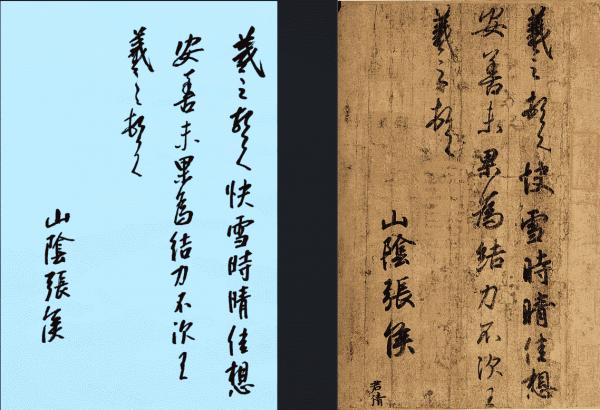 羲之頓首快雪時晴佳想
安善未果為結力不次王
羲之頓首
山陰張侯
羲之頓首快雪時晴佳想
安善未果為結力不次王
羲之頓首
山陰張侯
君倩